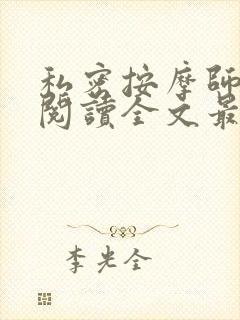 私密按摩師
閱讀全文最
李光全